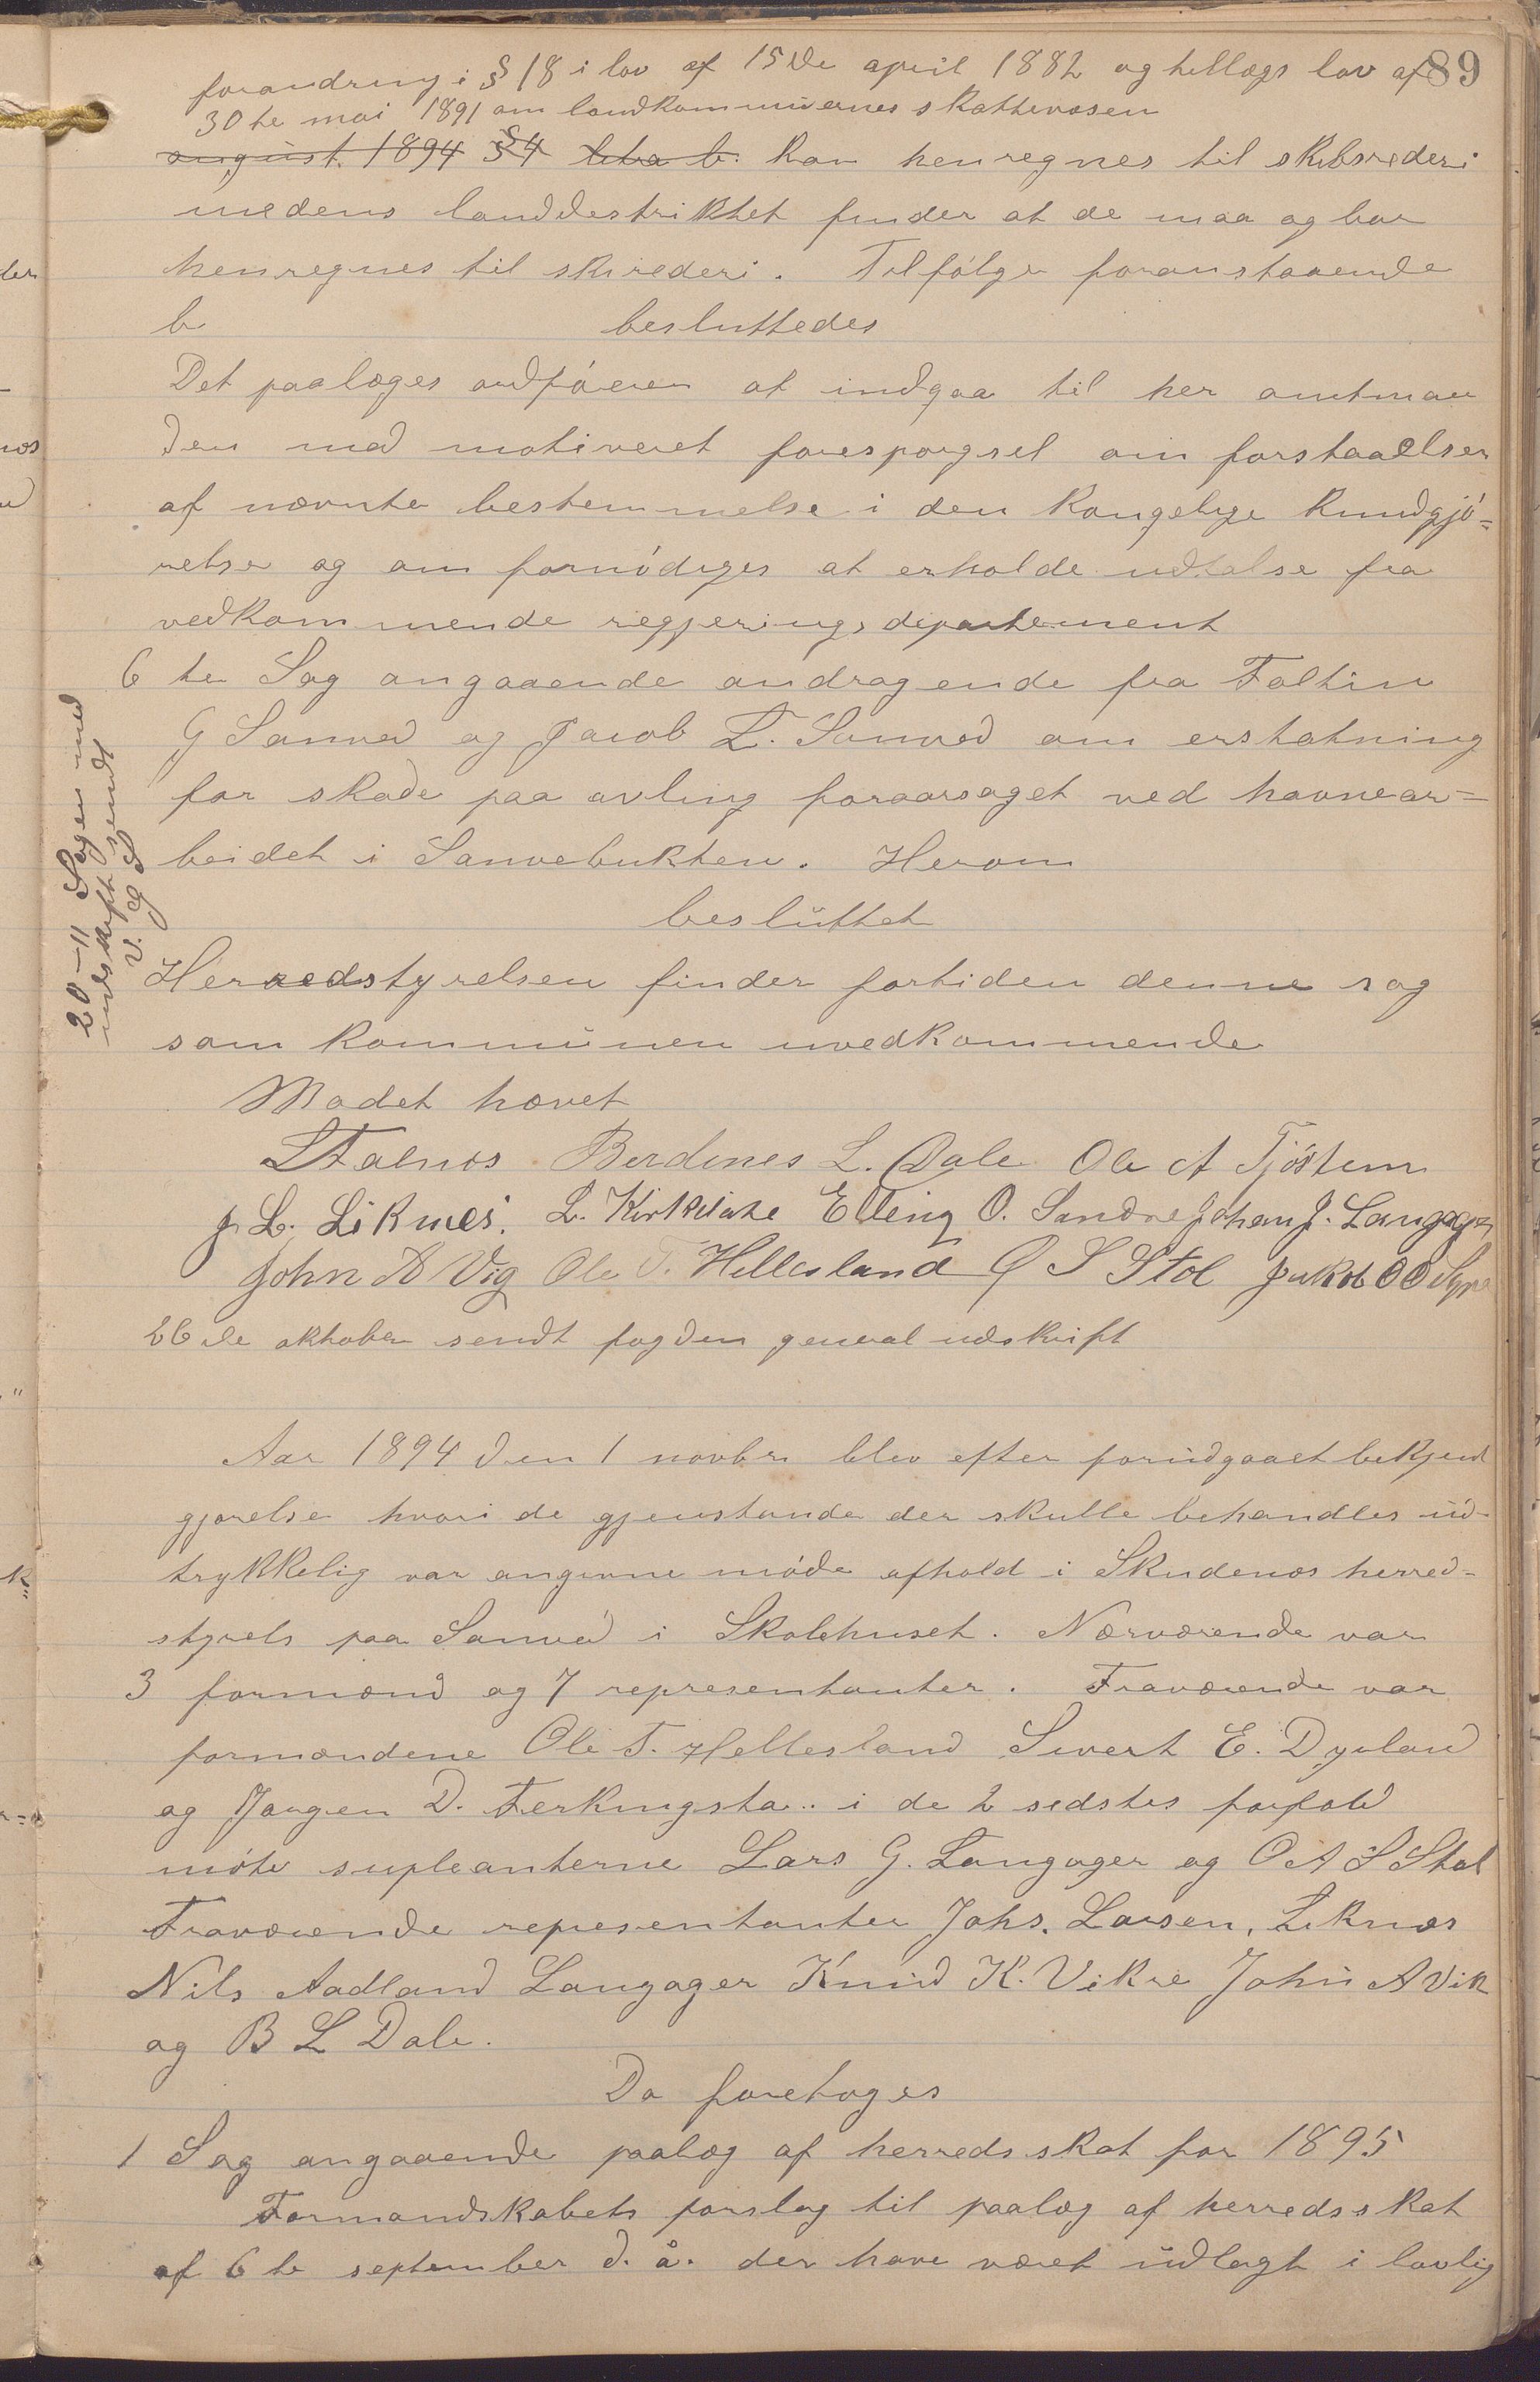 89
forandring i § 18 i lov af 15de april 1882 og tillægs lov af
30te mai 1891 om landkommunernes skattevæsen
august 1894 § 4 litra b. kan henregnes til skibsrederi
medens landdestriktet finder at de maa og bør
henregnes til skirederi. Tilfølge foranstaaende
b besluttedes
Det paalæges ordføreren at indgaa til her amtman
den med motiveret forespørgsel om forstaaelsen
af nævnte bestemmelse i den Kongelige Kundgjø=
relse og om fornødiges at erholde udtalse fra
vedkommende regjerings departement
6 te Sag angaaende andragende fra Faltin
G Sanved og Jacob T. Sanved om erstatning
for skade paa avling foraarsaget ved havnear=
beidet i Sanvebukten. Herom
besluttet
Herredstyrelsen finder fortiden denne sag
som kommunen uvedkommende
20-11 Sagen med
udskrift sendt
V. G S
Mødet hævet
S Falnes Berdines L. Dale Ole A Tjøstem
J L. Liknes. L. Kirkeleite Elling O. Sandve Johan J. Langager
John A Vig Ole T. Hellesland O S Stol Jakob O D Syre
26de oktober sendt fogden general udskrift
Aar 1894 den 1 novbr blev efter forudgaaet bekjent
gjørelse hvori de gjenstande der skulle behandles ud-
trykkelig var angivne møde afhold i Skudenæs herred-
styrels paa Sanved i Skolehuset. Nærværende var
3 formænd og 7 representanter. Fraværende var
formændene Ole T. Hellesland Sivert E. Dyrland
og Jørgen D. Ferkingsta.. i de 2 sidstes forfald
møte supleanterne Lars G. Langager og O A S Stol
Fraværende representanter Johs. Larsen, Liknæs
Nils Aadland Langager Knud K. Vikre John A Vik
og B L Dale.
Da foretoges
1 Sag angaaende paalæg af herredsskat for 1895
Formandskabets forslag til paalæg af herredsskat
af 6te september d. å. der have været udlagt i lovlig